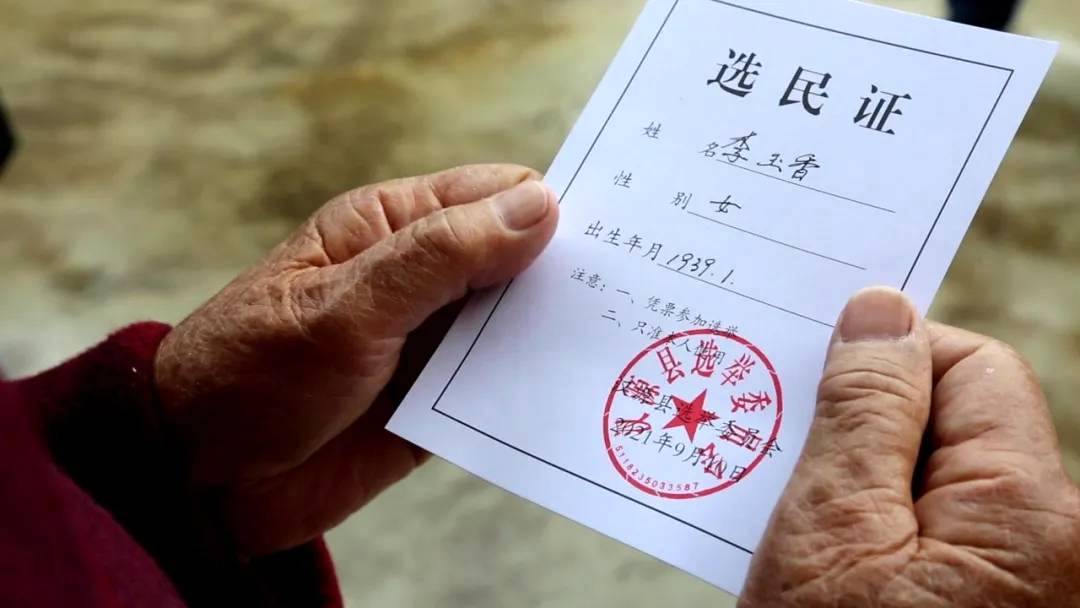 选民证
姓名 李玉香
性别 女
出生年月 1939.1.
注意：一、凭票参加选举
二、只准本人使用
汉源县选举委员会
2021年9月10日
5118235033587